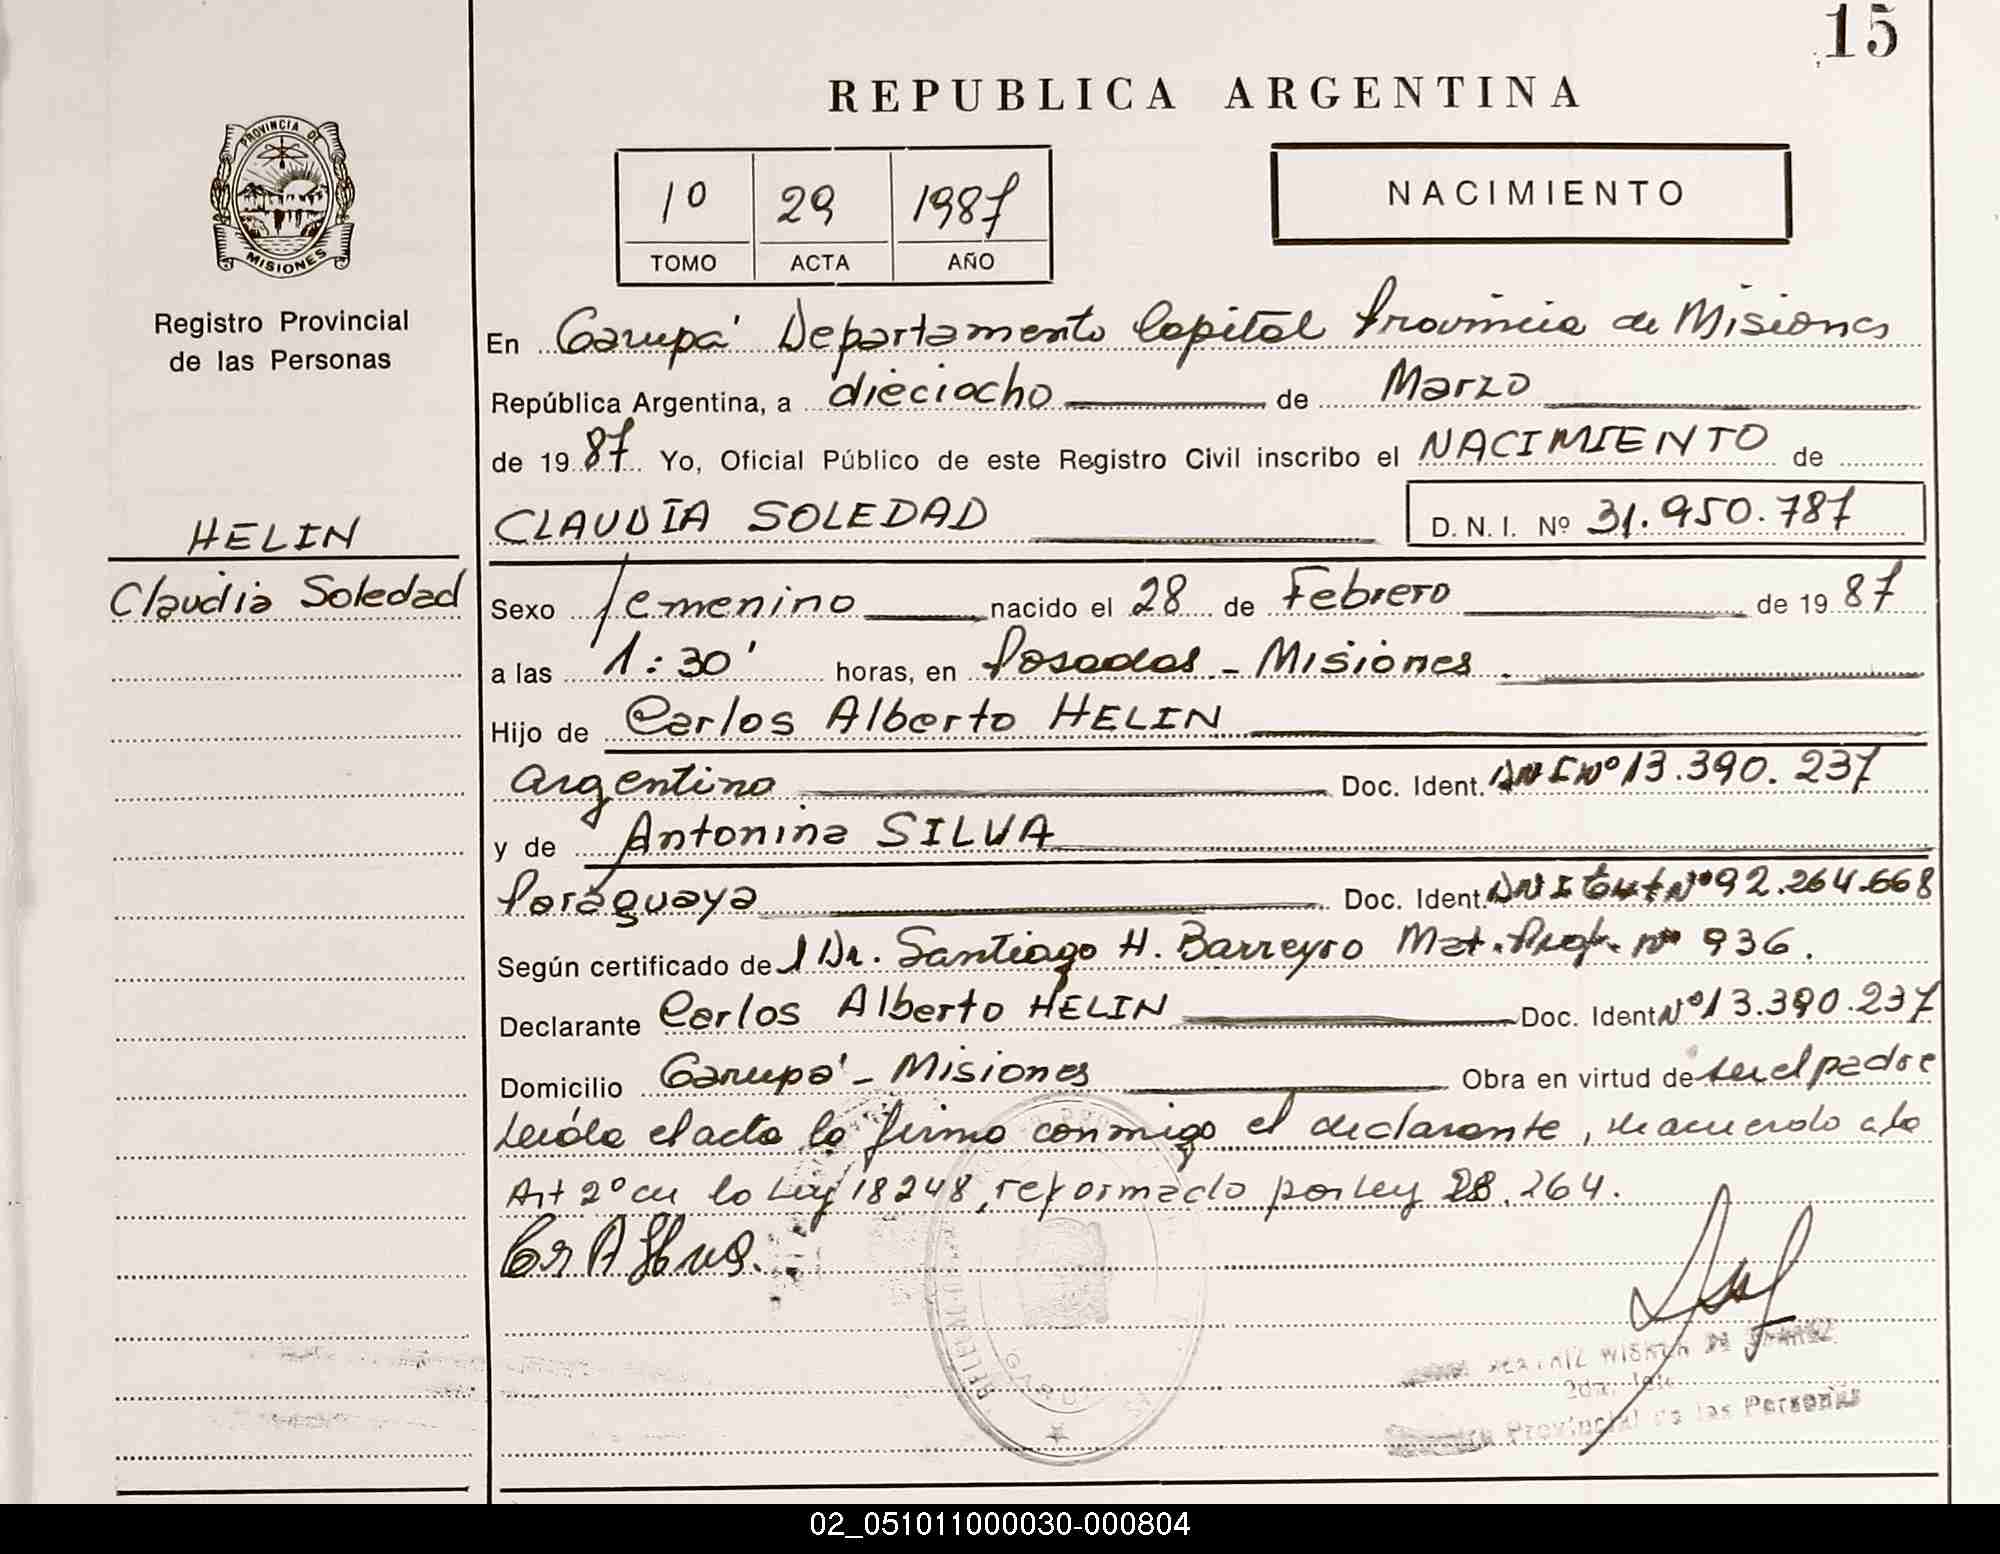 15
REPUBLICA ARGENTINA
PROVINCIA DE
MISIONES
Registro Provincial
de las Personas
1º 29 1987
TOMO ACTA AÑO
NACIMIENTO
En Garupá Departamento Capital Provincia de Misiones
República Argentina, a dieciocho de Marzo
de 1987 Yo, Oficial Público de este Registro Civil inscribo el NACIMIENTO de
HELIN
CLAUDIA SOLEDAD D.N.I. Nº 31.950.787
Claudia Soledad
Sexo femenino nacido el 28 de Febrero de 1987
a las 1:30' horas, en Posadas - Misiones
Hijo de Carlos Alberto HELIN
Argentino Doc. Ident. DNI Nº 13.390.237
y de Antonina SILVA
Paraguaya Doc. Ident. DNI Nº 92.264.668
Según certificado del Dr. Santiago H. Barreyro Mat. Prof. nº 936.
Declarante Carlos Alberto HELIN Doc. Ident Nº 13.390.237
Domicilio Garupá - Misiones Obra en virtud de ser el padre
Leída el acta la firma conmigo el declarante, de acuerdo a la
Art 2º de la Ley 18248, reformado por Ley 23.264.
GARUPA
Provincial de las Personas
02_051011000030-000804